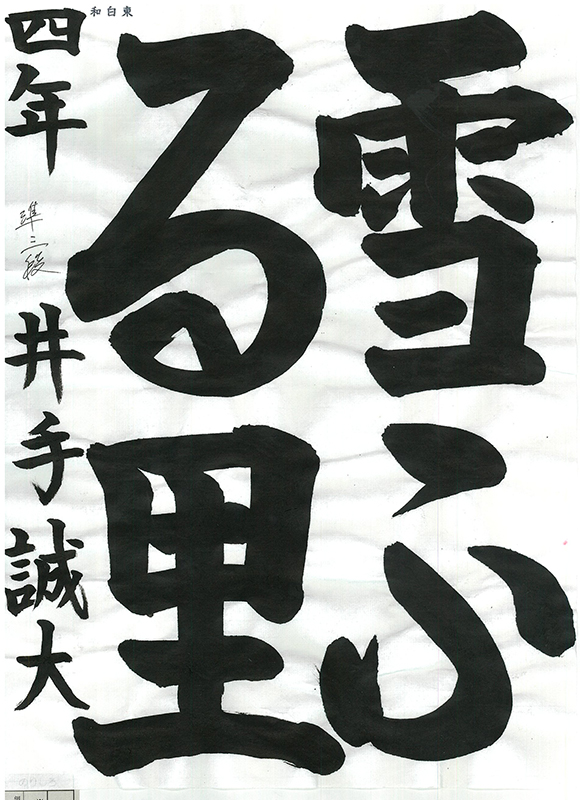 雪ふ
る里
四年 準三段 井手誠大
東白和
のりしろ